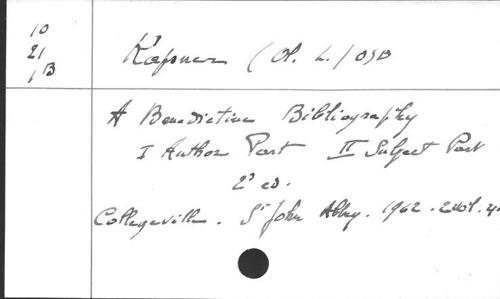 10
21
1B
Kapsner (Ol. L.) OSB
A Benedictine Bibliography
I Author Part II Subject Part
2ª ed.
Collegeville. St John Abbey. 1962. 2 vol. 4°